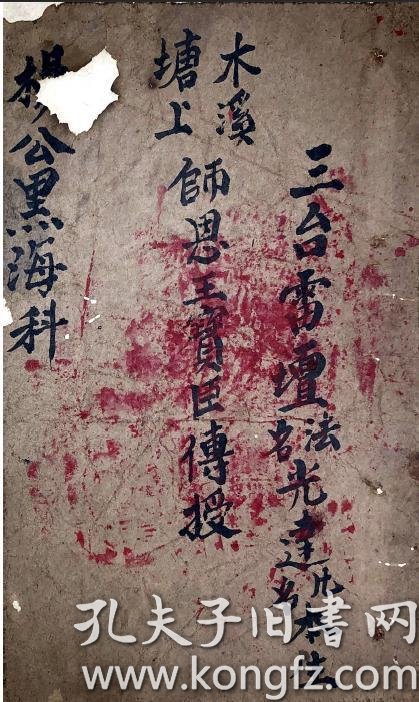 三台雷壇法名光達凡名
木溪
塘上
師恩王寶臣傳授
楊公黑海科
孔夫子旧书网
www.kongfz.com